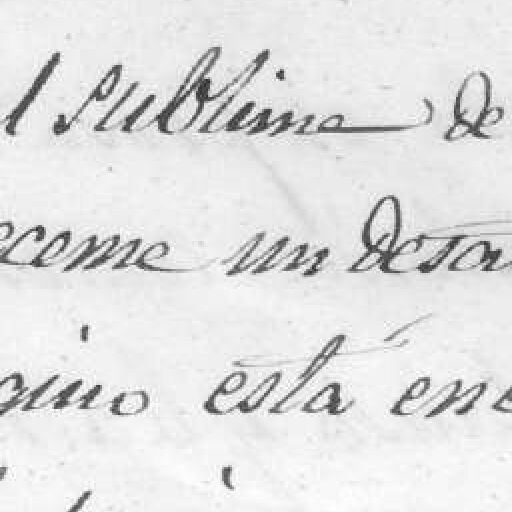 l sublime de
eceme un desa
gino está enc